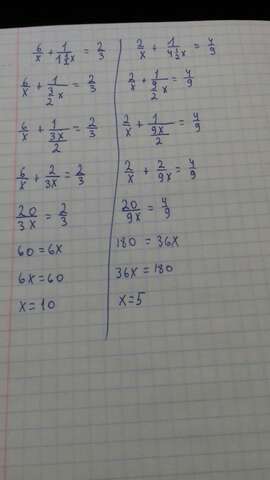 6/x + 1/(1 1/2 x) = 2/3
6/x + 1/(3/2 x) = 2/3
6/x + 1/(3x/2) = 2/3
6/x + 2/3x = 2/3
20/3x = 2/3
60 = 6x
6x = 60
x = 10
2/x + 1/(4 1/2 x) = 4/9
2/x + 1/(9/2 x) = 4/9
2/x + 1/(9x/2) = 4/9
2/x + 2/9x = 4/9
20/9x = 4/9
180 = 36x
36x = 180
x = 5